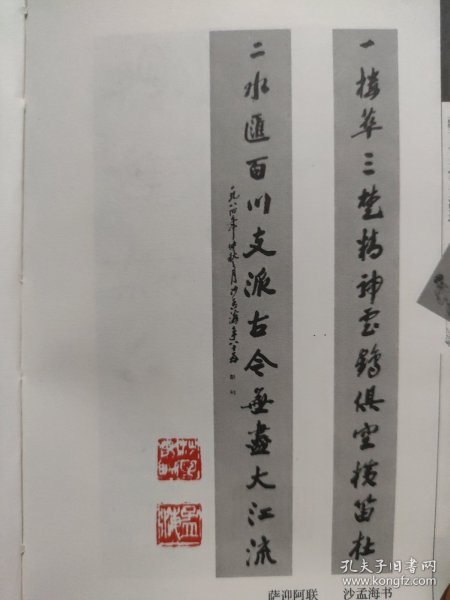 一楼萃三楚精神云鹤俱空横笛在
二水汇百川支派古今无尽大江流
一九八四年仲秋之月沙孟海年八十五
萨迎阿联 沙孟海书
孔夫子旧书网